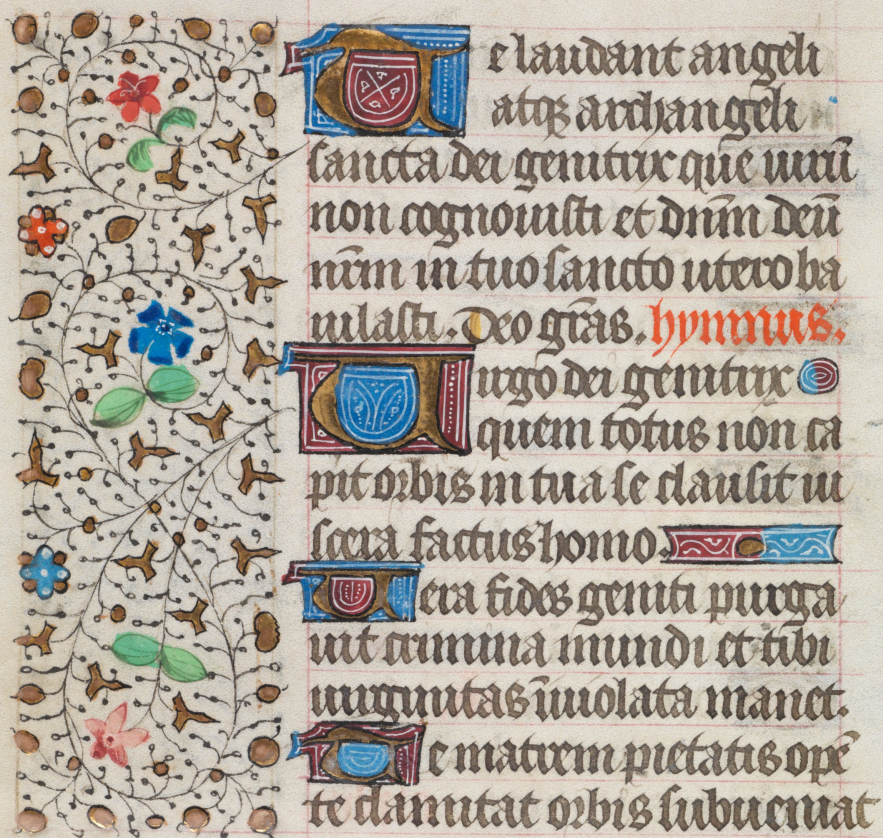 Te laudant angeli
atqꝫ archangeli
sancta dei genitrix que uirū
non cognouisti et dn̄m deū
nr̄m in tuo sancto utero ba
iulasti. Deo gr̄as. hymnus.
Uirgo dei genitrix
quem totus non ca
pit orbis in tua se clausit ui
scera factus homo.
Uera fides geniti purga
uit crimina mundi et tibi
uirginitas īuiolata manet.
Te matrem pietatis opē
te clamitat orbis subueniat